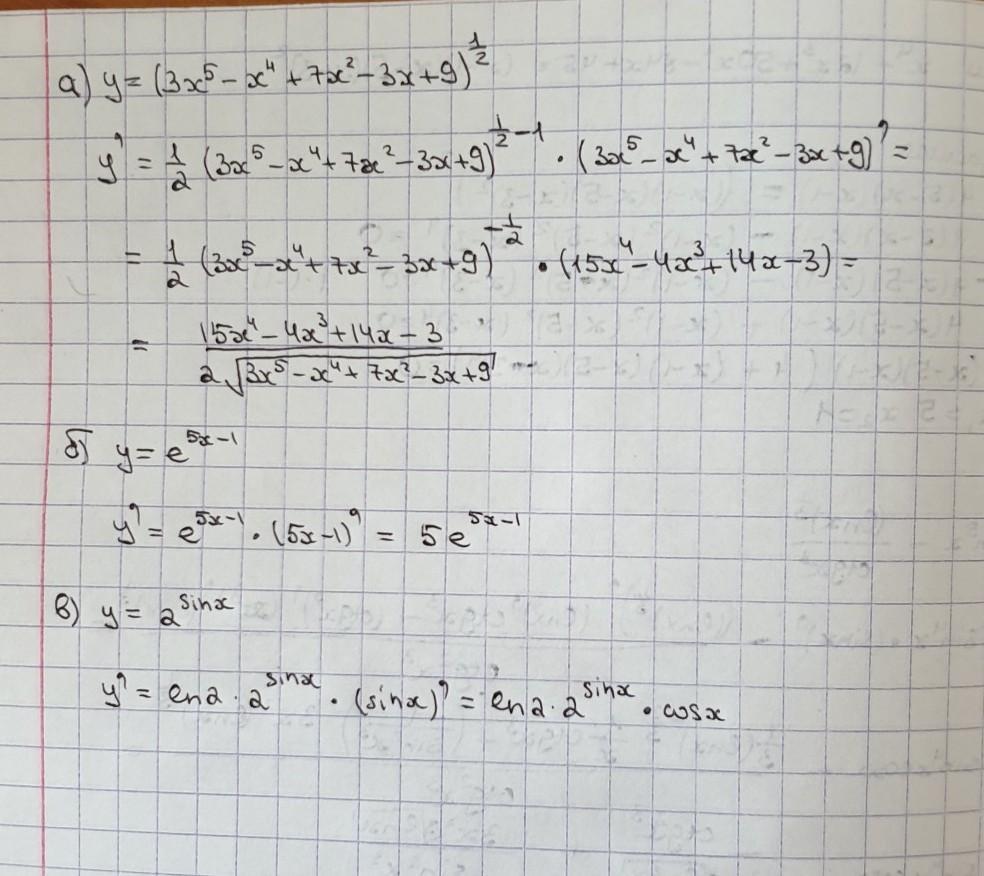 а) y = (3x⁵ − x⁴ + 7x² − 3x + 9)^(1/2)
y' = 1/2 (3x⁵ − x⁴ + 7x² − 3x + 9)^(1/2 − 1) · (3x⁵ − x⁴ + 7x² − 3x + 9)' =
= 1/2 (3x⁵ − x⁴ + 7x² − 3x + 9)^(−1/2) · (15x⁴ − 4x³ + 14x − 3) =
= (15x⁴ − 4x³ + 14x − 3) / (2√(3x⁵ − x⁴ + 7x² − 3x + 9))
б) y = e^(5x−1)
y' = e^(5x−1) · (5x−1)' = 5e^(5x−1)
в) y = 2^(sinx)
y' = ln2 · 2^(sinx) · (sinx)' = ln2 · 2^(sinx) · cosx